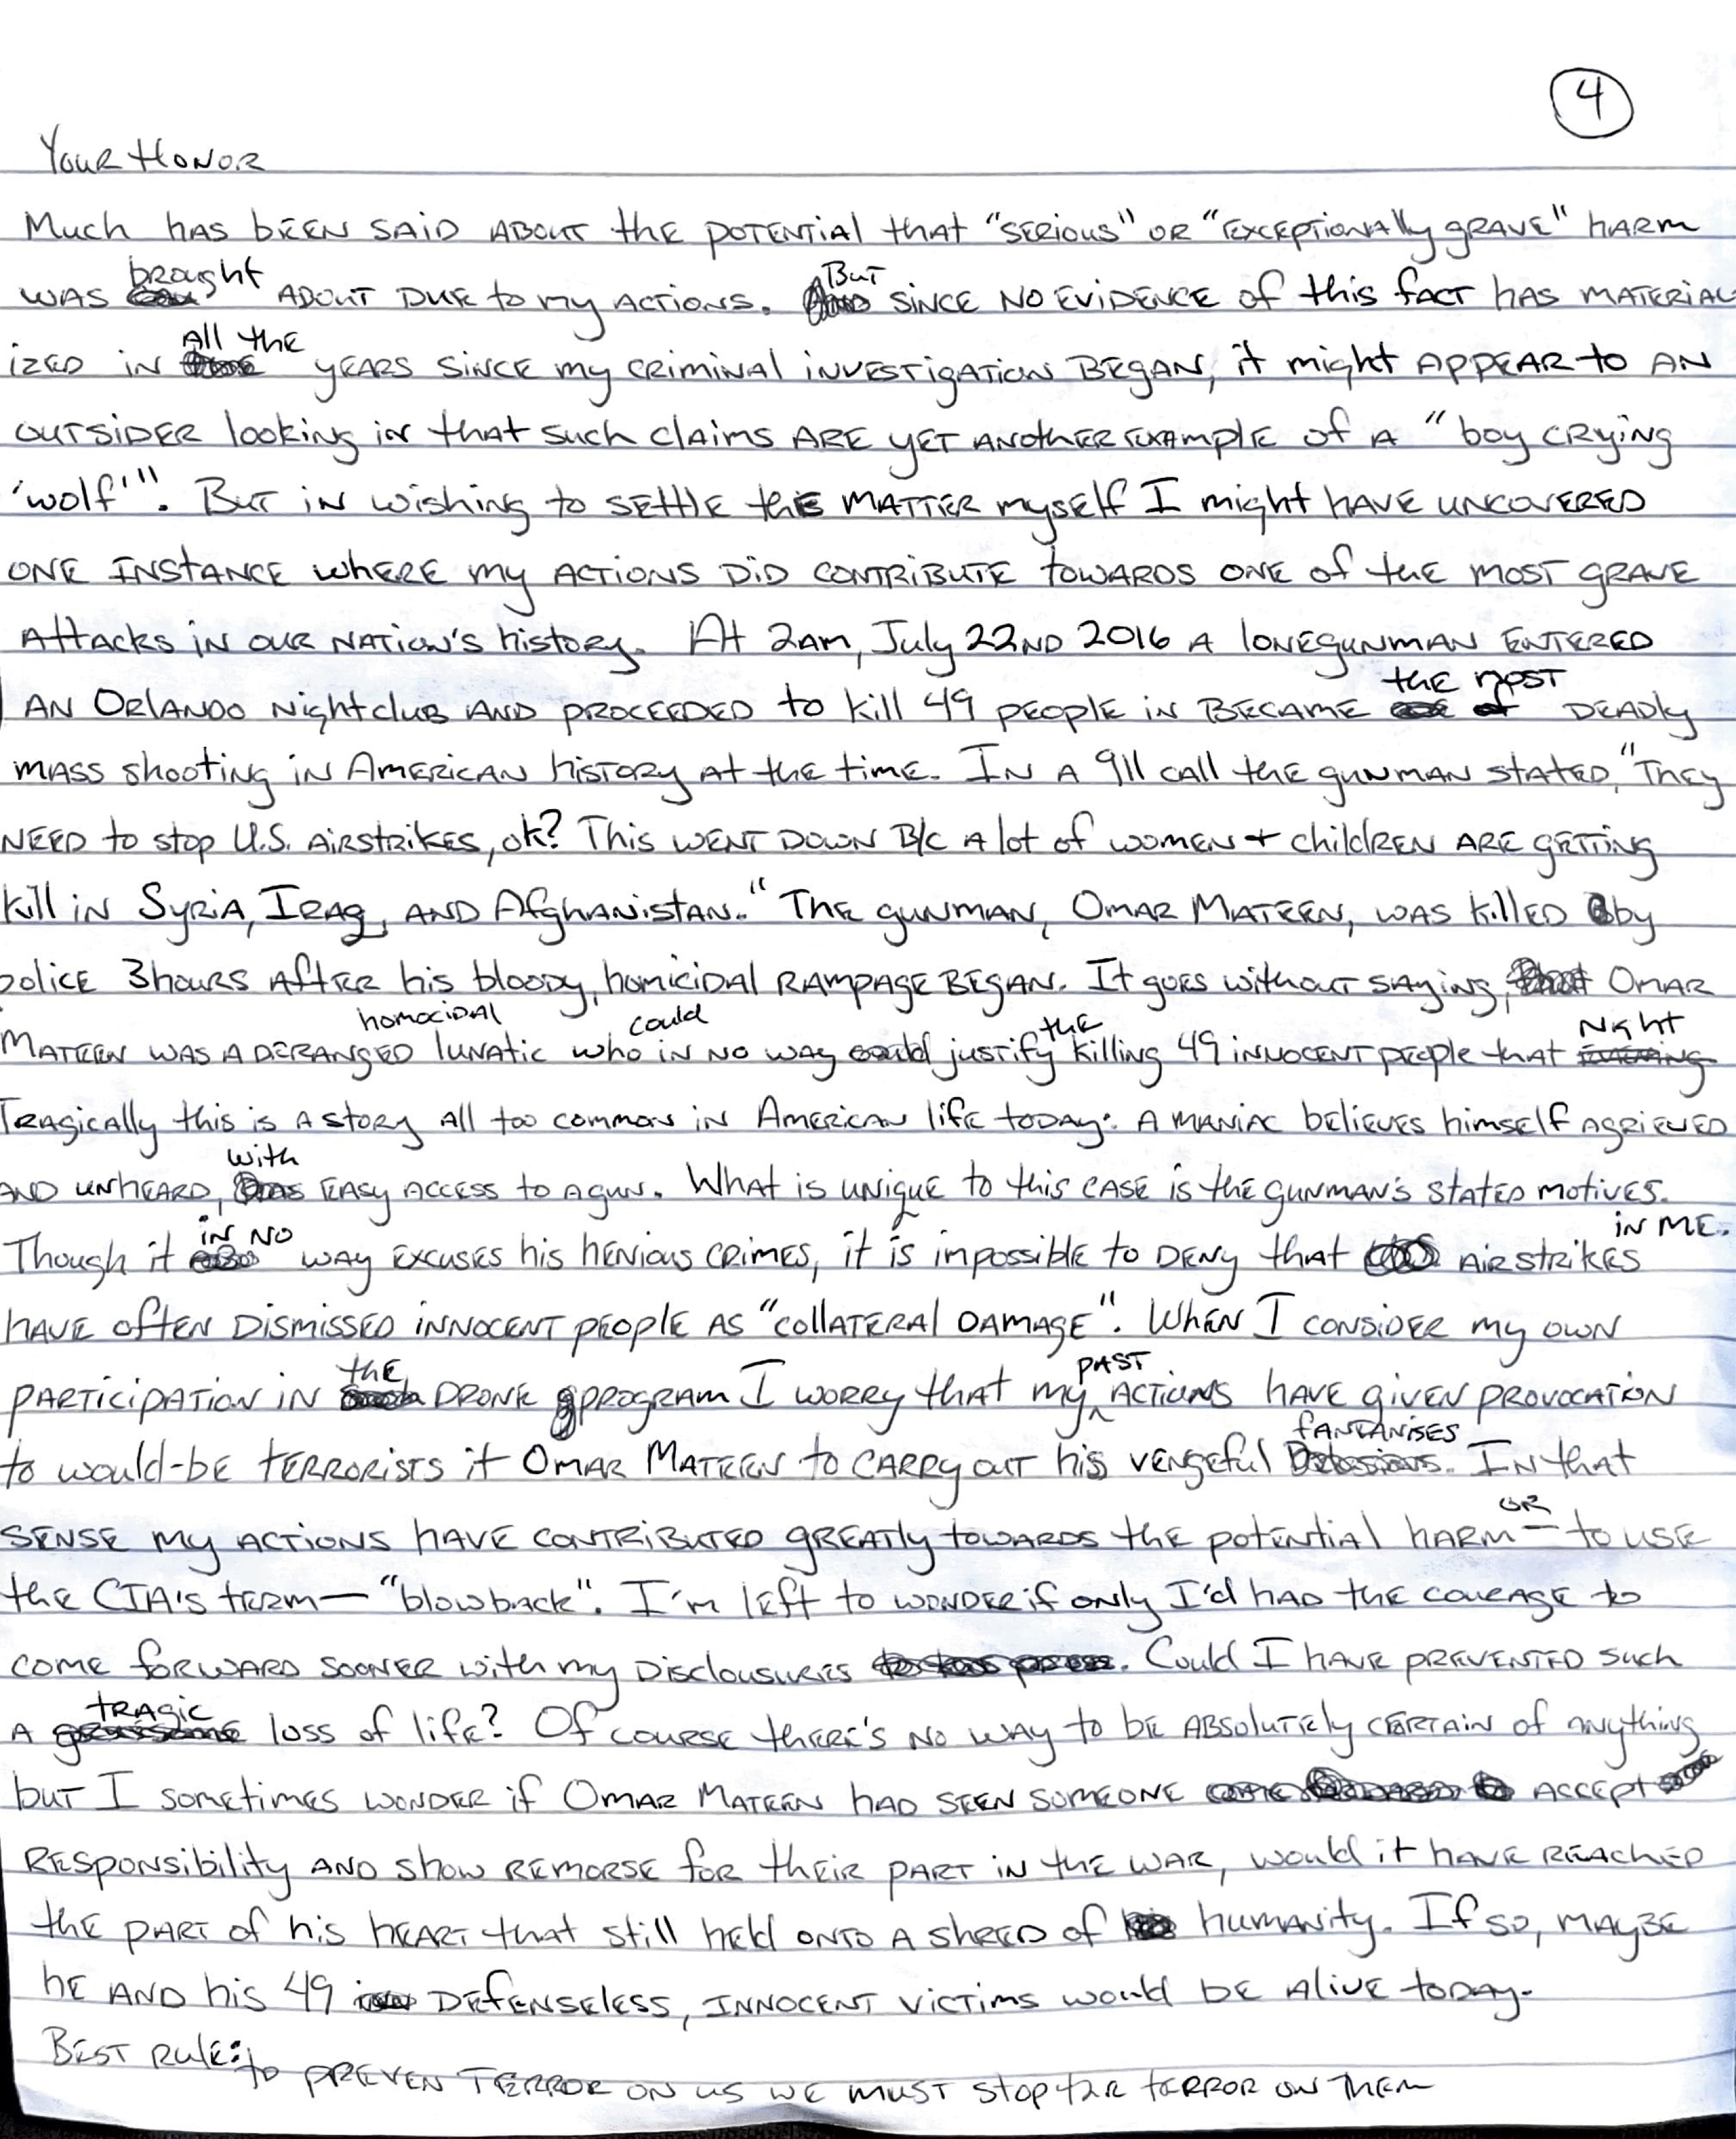 4
Your Honor
Much has been said about the potential that "serious" or "exceptionally grave" harm
was brought about due to my actions. But since no evidence of this fact has material-
ized in all the years since my criminal investigation began, it might appear to an
outsider looking in that such claims are yet another example of a "boy crying
'wolf'". But in wishing to settle the matter myself I might have uncovered
one instance where my actions did contribute towards one of the most grave
attacks in our nation's history. At 2am, July 22nd 2016 a lone gunman entered
an Orlando nightclub and proceeded to kill 49 people in became the most deadly
mass shooting in American history at the time. In a 911 call the gunman stated, "They
need to stop U.S. airstrikes, ok? This went down b/c a lot of women + children are getting
kill in Syria, Iraq, and Afghanistan." The gunman, Omar Mateen, was killed by
police 3 hours after his bloody, homicidal rampage began. It goes without saying, Omar
Mateen was a deranged homocidal lunatic who could in no way justify the killing 49 innocent people that night
Tragically this is a story all too common in American life today: a maniac believes himself agrieved
and unheard, with easy access to a gun. What is unique to this case is the gunman's stated motives.
Though it in no way excuses his henious crimes, it is impossible to deny that airstrikes in ME.
have often dismissed innocent people as "collateral damage". When I consider my own
participation in the drone program I worry that my past actions have given provocation
to would-be terrorists it Omar Mateen to carry out his vengeful fantanises. In that
sense my actions have contributed greatly towards the potential harm or — to use
the CIA's term — "blowback". I'm left to wonder if only I'd had the courage to
come forward sooner with my disclousuries. Could I have prevented such
a tragic loss of life? Of course there's no way to be absolutely certain of anything
but I sometimes wonder if Omar Mateen had seen someone accept
responsibility and show remorse for their part in the war, would it have reached
the part of his heart that still held onto a shred of humanity. If so, maybe
he and his 49 defenseless, innocent victims would be alive today.
Best rule: to preven terror on us we must stop the terror on them